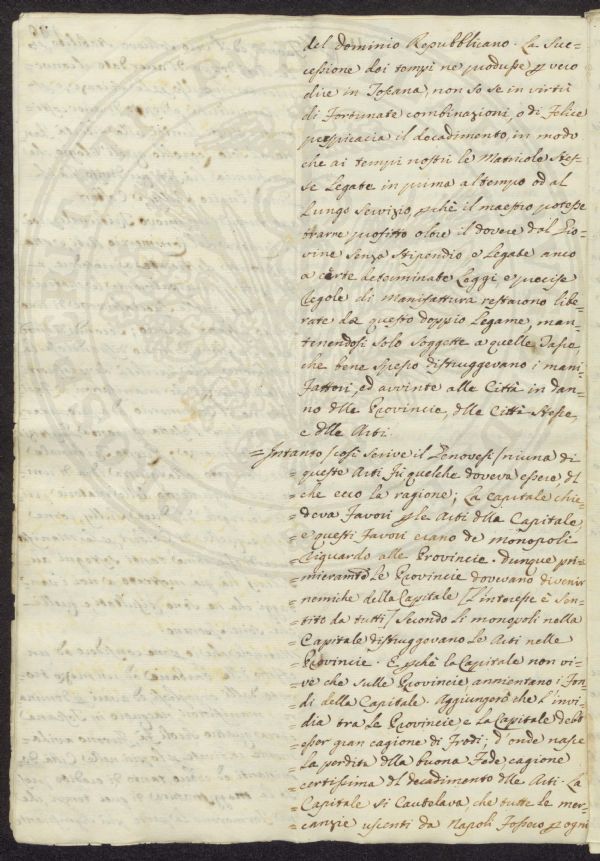 del dominio Repubblicano. La Suc-
cessione dei tempi ne produsse p vero
dire in Toscana, non so se in virtù
di Fortunate combinazioni, o di Felice
perspicacia il decadimento, in modo
che ai tempi nostri le Matricole Stes-
se Legate in prima al tempo od al
Lungo Servizio, pchè il maestro potesse
trarne profitto oltre il dovere dal Gio-
vine Senza Stipendio e Legate anco
a certe determinate Leggi e precise
Regole di Manifattura restarono libe-
rate da questo doppio Legame, man-
tenendosi Solo Soggette a quelle Tasse,
che bene Spesso distruggevano i mani-
Fattori, ed avvinte alle Città in dan-
no dlle Provincie, dlle Città Stesse,
e dlle Arti.
= Intanto (così Scrive il Genovesi) niuna di
= queste Arti Fù quelche doveva essere dl
= chè ecco la ragione; La Capitale chie-
= deva Favori p le Arti dlla Capitale,
= e questi Favori erano de' monopoli
= Riguardo alle Provincie. Dunque pri-
= mieramte Le Provincie dovevano divenir
= nemiche della Capitale / L'interesse è Sen-
= tito da tutti / Secondo Li monopoli nella
= Capitale distruggevano Le Arti nelle
= Provincie. E pchè la Capitale non vi-
= ve che Sulle Provincie annientano i Fon-
= di della Capitale. Aggiungerò che L'invi-
= dia tra Le Provincie e La Capitale debb'
= esser gran cagione di Frodi; d'onde nasce
= La perdita dlla buona Fede cagione
= certissima dl decadimento dlle Arti. La
= Capitale Si Cautelava, che tutte le mer-
= canzie uscenti da Napoli Fossero p ogni